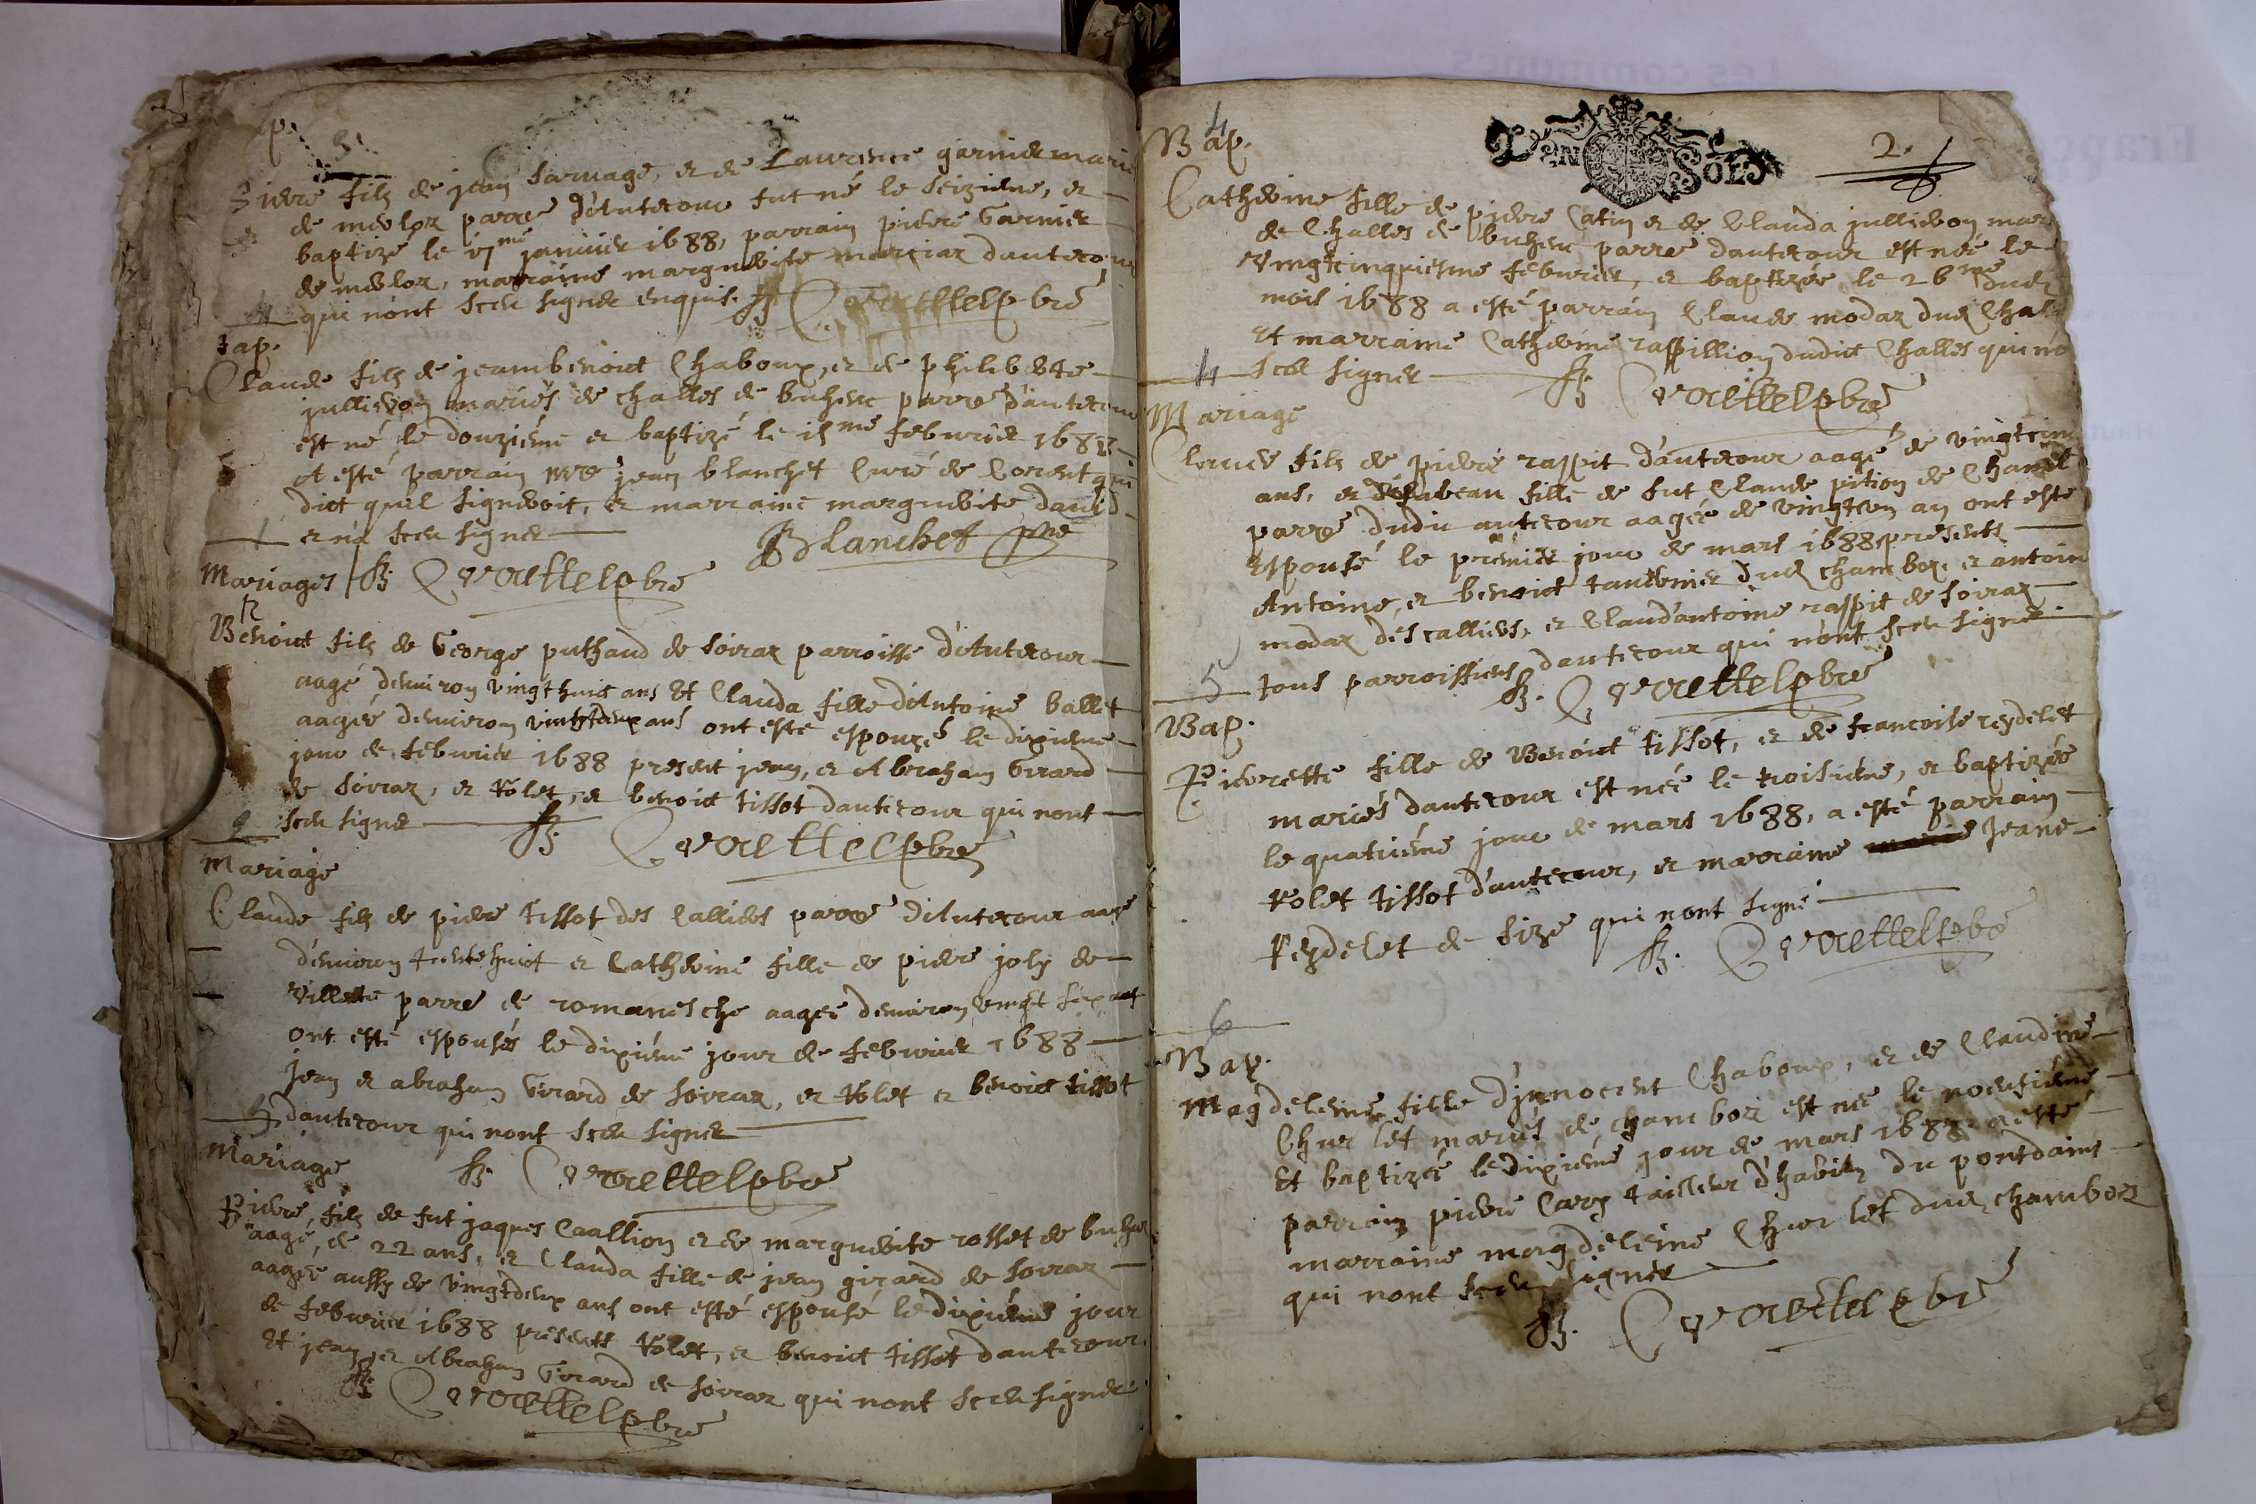 Bap. 3
Pierre fils de jean Sarvage, et de Laurence garnier mariés
de meylor parre d'Autecour fut né le seizieme, et
baptizé le 17me janvier 1688, parrain pierre Garnier
de meylor, marraine marguerite merciar dautecour
qui n'ont sceu signer enquis.
4
Bap.
Claude fils de jeambenoict Chaboux, et de philiberte
jullieron mariés de challes de buhenc parre d'autecour
est né le douziéme et baptizé le 15me febvrier 1688
A esté parrain mre jean blanchet Curé de Corent qui
dict quil signeroit, et marraine marguerite
et n'a sceu signer
1
Blanchet pre
Mariages
Benoict fils de George puthaud de soiraz parroisse d'Autecour
aagé denviron vingthuict ans Et Clauda fille d'Antoine ballet
aagée denviron vingtdeux ans ont esté espouzés le dixieme
jour de febvrier 1688 present jean, et Abraham Girard
de soiraz, et Rolet, et benoict tissot dautecour qui nont
sceu signer
2
Mariage
Claude fils de pierre tissot des Calliers parre d'Autecour aagé
d'environ trentehuict et Catherine fille de pierre joly de
Villette parre de romanesche aagée denviron vingt six ans
ont esté espousés le dixiéme jour de febvrier 1688
jean et abraham Girard de soiraz, et Rolet et benoict tissot
dautecour qui nont sceu signer
3
Mariage
Pierre, fils de fut jaques Caallion et de marguerite rosset de buhenc
aagé, de 22 ans, et Clauda fille de jean girard de soiraz
aagée aussy de vingtdeux ans ont esté espousé le dixiéme jour
de febvrier 1688 presents Rolet, et benoict tissot dautecour
Et jean et Abraham Girard de soiraz qui nont sceu signer
2.
Bap. 4
DEN SOLS
Catherine fille de pierre Catin et de Clauda jullieron mariés
de Challes de buhenc parre dautecour est née le
vingtcinquiesme febvrier, et baptizée le 26me dud
mois 1688 a esté parrain Claude modaz dud Challes
Et marraine Catherine raspillion dudict Challes qui nont
sceu signer
4
Mariage
Claude fils de pierre raspit d'autecour aagé de vingtcinq
ans, et Ysabeau fille de fut Claude pition de Chambo
parre dudit autecour aagée de vingtun an ont esté
Espousé le premier jour de mars 1688 presents
Antoine, et benoict tavernier dud chamboz. et antoine
modaz des calliers, et Claud'antoine raspit de soiraz
tous parroissiens dautecour qui n'ont sceu signer
5
Bap.
Pierrette fille de Benoict tissot, et de francoise reydelet
mariés dautecour est née le troisieme, et baptizée
le quatriéme jour de mars 1688, a esté parrain
Rolet tissot d'autecour, et marraine Jeane
Reydelet de size qui nont signé
6
Bap.
Magdeleine fille D'jnnocent Chaboux, et de Claudine
Churlet mariés de chamboz est née le noeufiéme
Et baptizée le dixiéme jour de mars 1688. a esté
parrain pierre Cary tailleur d'habits du pontdains
marraine magdeleine Churlet dud chamboz
qui nont sceu signer